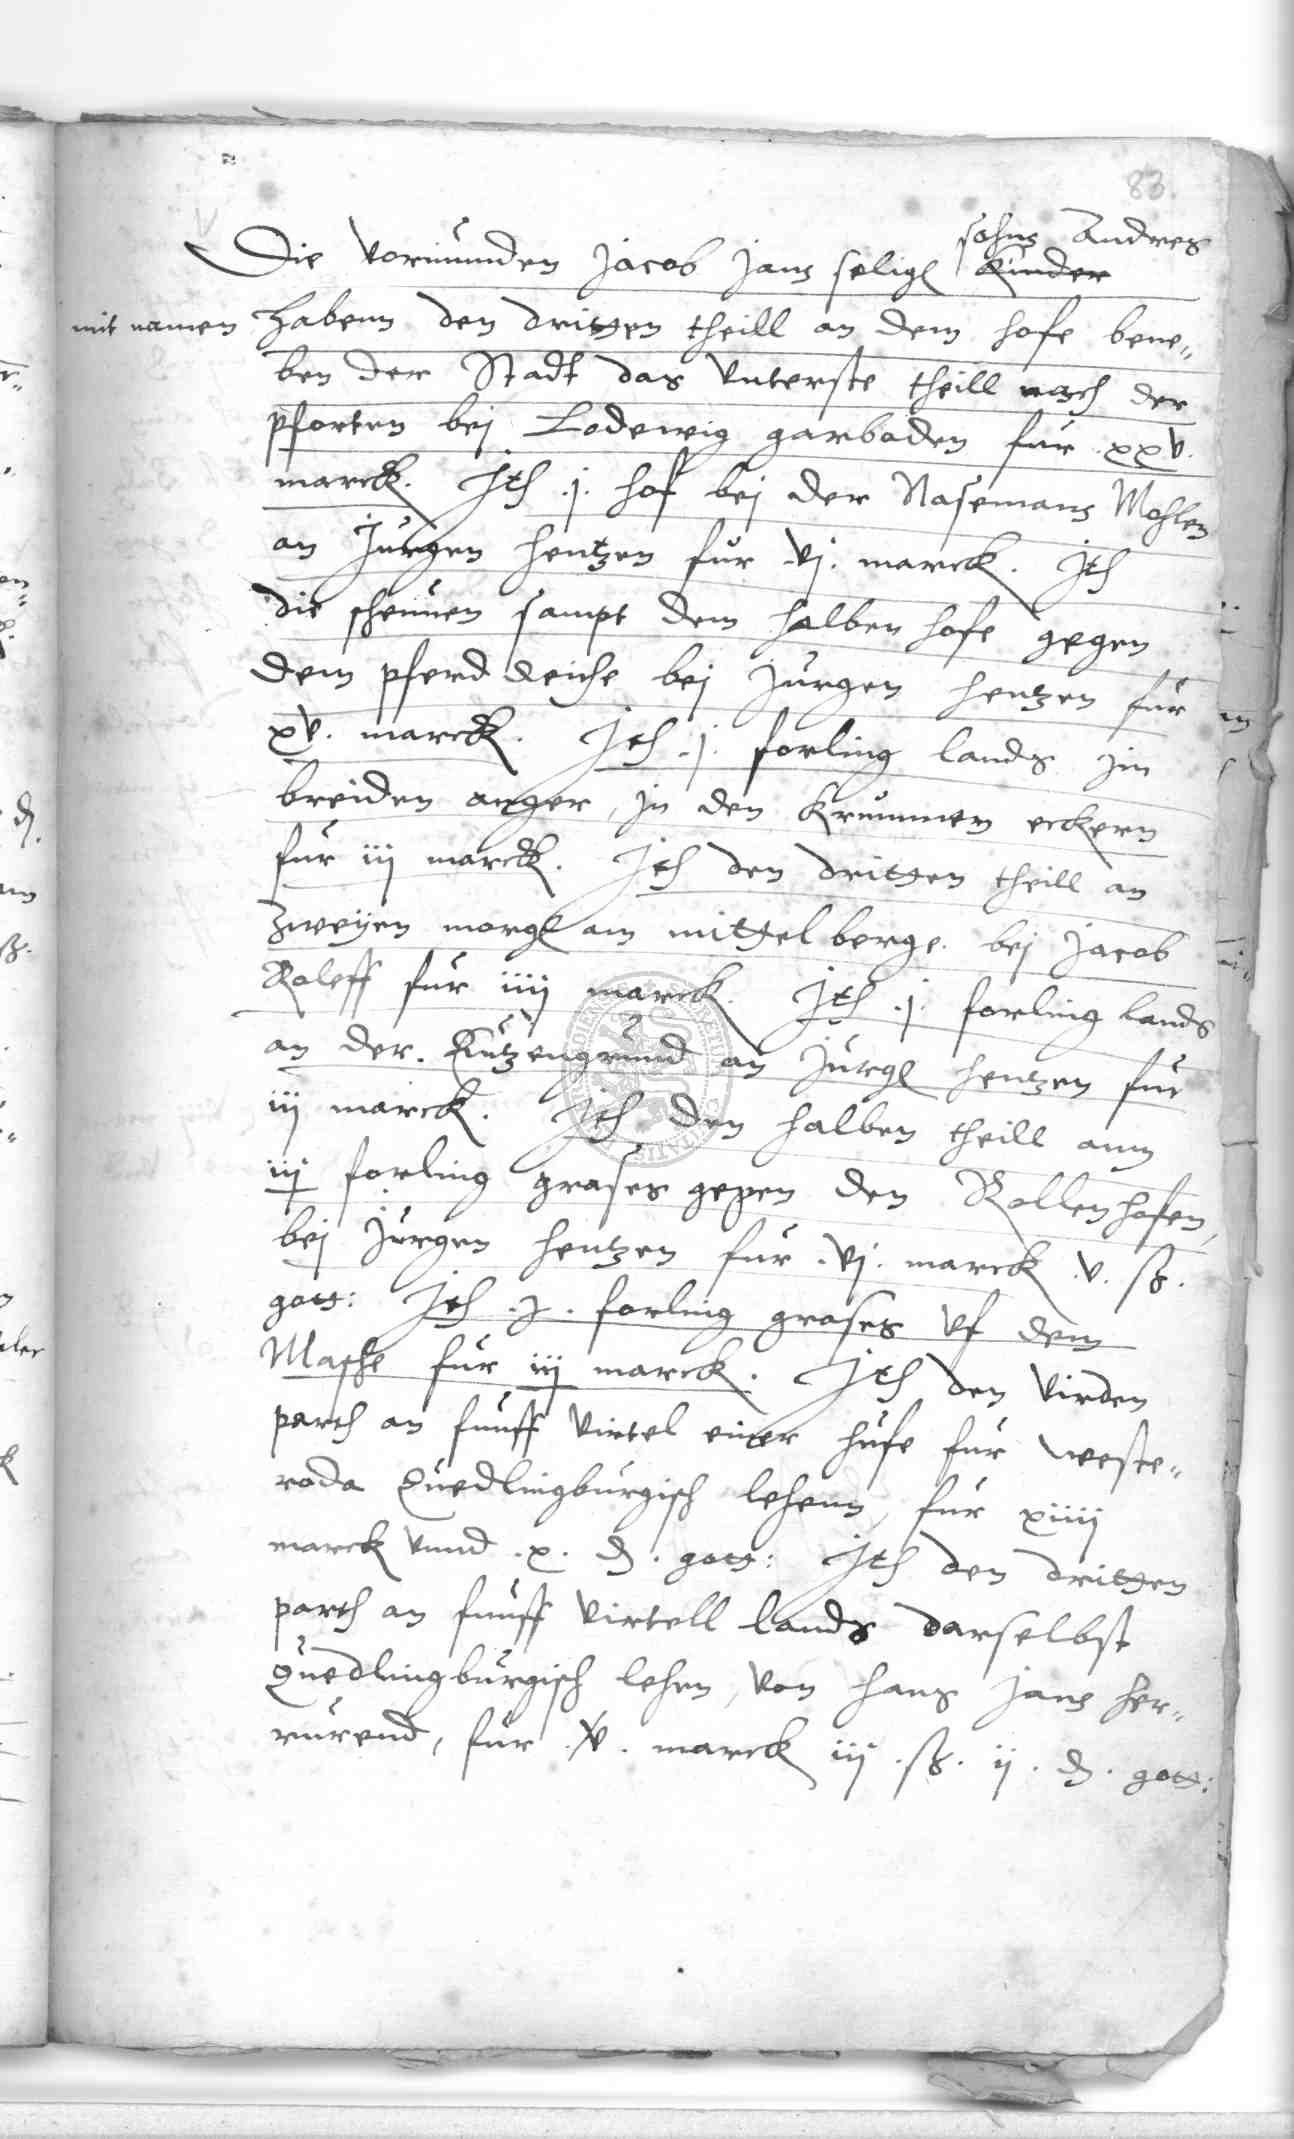 83.
sohns Andres
Die vormunden Jacob Jans selig kinder
mit namen
habenn den dritten theill an dem hofe bene„
ben der Stadt das unterste theill nach der
pforten bej Lodewig garboden fur xxv.
marck. Jth .j. hof bej der Nasemans Mohlen
an Jurgen hentzen fur vj. marck. Jth
die scheunen sampt dem halben hofe gegen
dem pferd deiche bej Jurgen hentzen fur
xv. marck. Jth .j. forling lands jm
breiden anger, jn den krummen eckern
fur iij marck. Jth den dritten theill an
zweyen morg am mittelberge. bej Jacob
Roleff fur iiij marck. Jth .j. forling lands
an der Kutzengrund an Jurg hentzen fur
iij marck. Jth den halben theill ann
iij forling grases gegen den Rollenhofen,
bej Jurgen hentzen fur .vj. marck .v. ß.
gott: Jth .j. forling grases uf dem
Masche fur iij marck. Jth den virden
parth an funff virtel einer hufe fur weste„
roda Quedlingburgisch lehenn, fur xiiij
marck unnd .x. d. gott: Jth den dritten
parth an funff virtell lands darselbst
Quedlingburgisch lehen, von hans Jans her„
rurend, fur .xv. marck iij .ß. ij .d. gott: